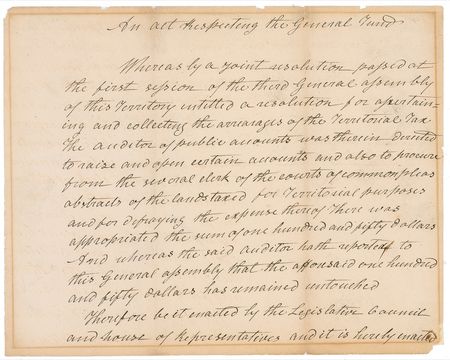 An act Respecting the General Fund
Whereas by a joint resolution passed at
the first session of the third General assembly
of this Territory entitled a resolution for asertain-
ing and collecting the arrearages of the Territorial Tax
The auditor of public accounts was therein directed
to raise and open certain accounts and also to procure
from the several clerk of the courts of common pleas
abstracts of the lands taxed for Territorial purposes
and for defraying the expense thereof There was
appropriated the sum of one hundred and fifty dollars
And whereas the said auditor hath reported to
this General assembly that the afforesaid one hundred
and fifty dollars has remained untouched
Therefore be it enacted by the Legislative Council
and house of Representatives and it is hereby enacted